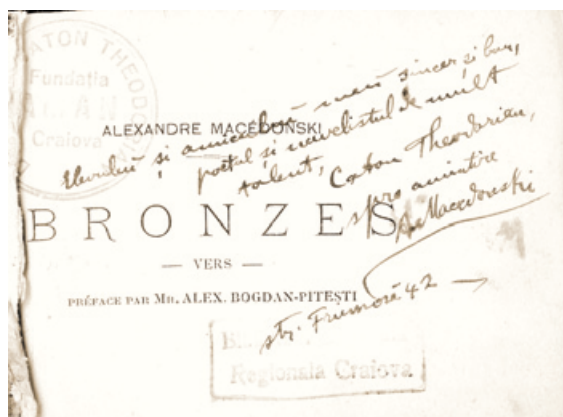 CATON THEODORIAN
Fundația
AMAN
Craiova
Elevului și amicului meu sincer și bun,
poetul și nuvelistul de mult
talent, Caton Theodorian,
spre amintire
Al Macedonski
ALEXANDRE MACEDONSKI
BRONZES
— VERS —
PRÉFACE PAR MR. ALEX. BOGDAN-PITEȘTI
str. Frumoasă 42 —
Regionala Craiova